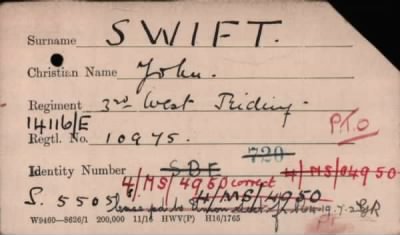 Surname SWIFT.
Christian Name John.
Regiment 3rd West Riding.
14116/E P.T.O
Regtl. No. 10975.
720
Identity Number SDF 4/MS/04950
4/MS/4950 correct
S. 5505 4/MS/4950
W9460—8626/1 200,000 11/16 HWV(P) H16/1765